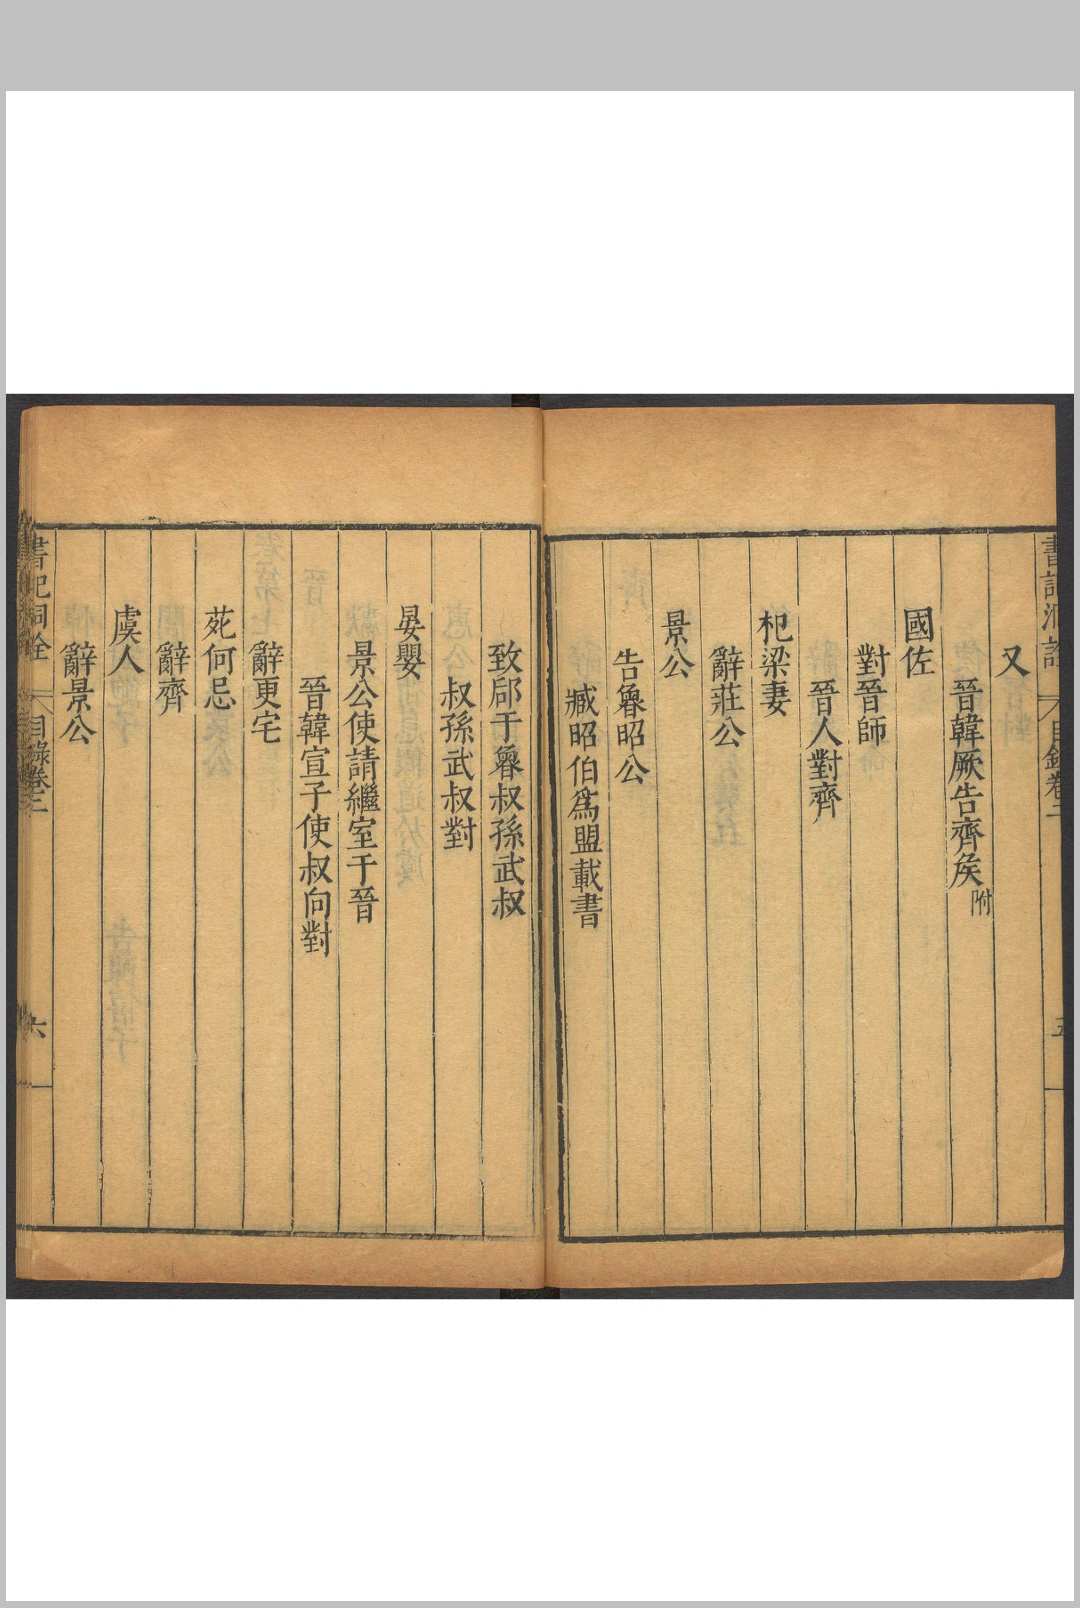 又
晉韓厥告齊矦附
國佐
對晉師
晉人對齊
杞梁妻
辭莊公
景公
告魯昭公
臧昭伯爲盟載書
致郈于魯叔孫武叔
叔孫武叔對
晏嬰
景公使請繼室于晉
晉韓宣子使叔向對
辭更宅
苑何忌
辭齊
虞人
辭景公
書記洞詮 目錄卷二 六